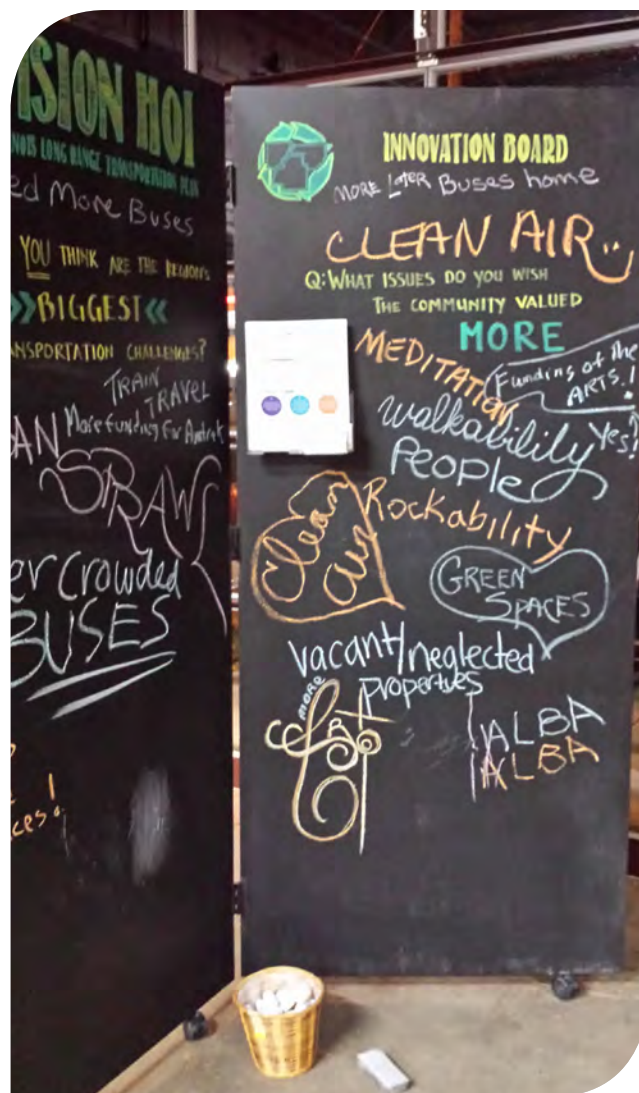 ISION HOI
NOIS LONG RANGE TRANSPORTATION PLAN
ed More Buses
YOU THINK ARE THE REGION'S
BIGGEST
NSPORTATION CHALLENGES?
TRAIN
TRAVEL
More funding for Amtrak
AN
SPRAWL
er Crowded
BUSES
ces!
INNOVATION BOARD
MORE Later Buses home
CLEAN AIR
Q: WHAT ISSUES DO YOU WISH
THE COMMUNITY VALUED
MORE
MEDITATION
Funding of the
ARTS!
walkability
Yes!
People
Rockability
Clean
air
GREEN
SPACES
vacant/neglected
properties
MORE
ALBA
ALBA